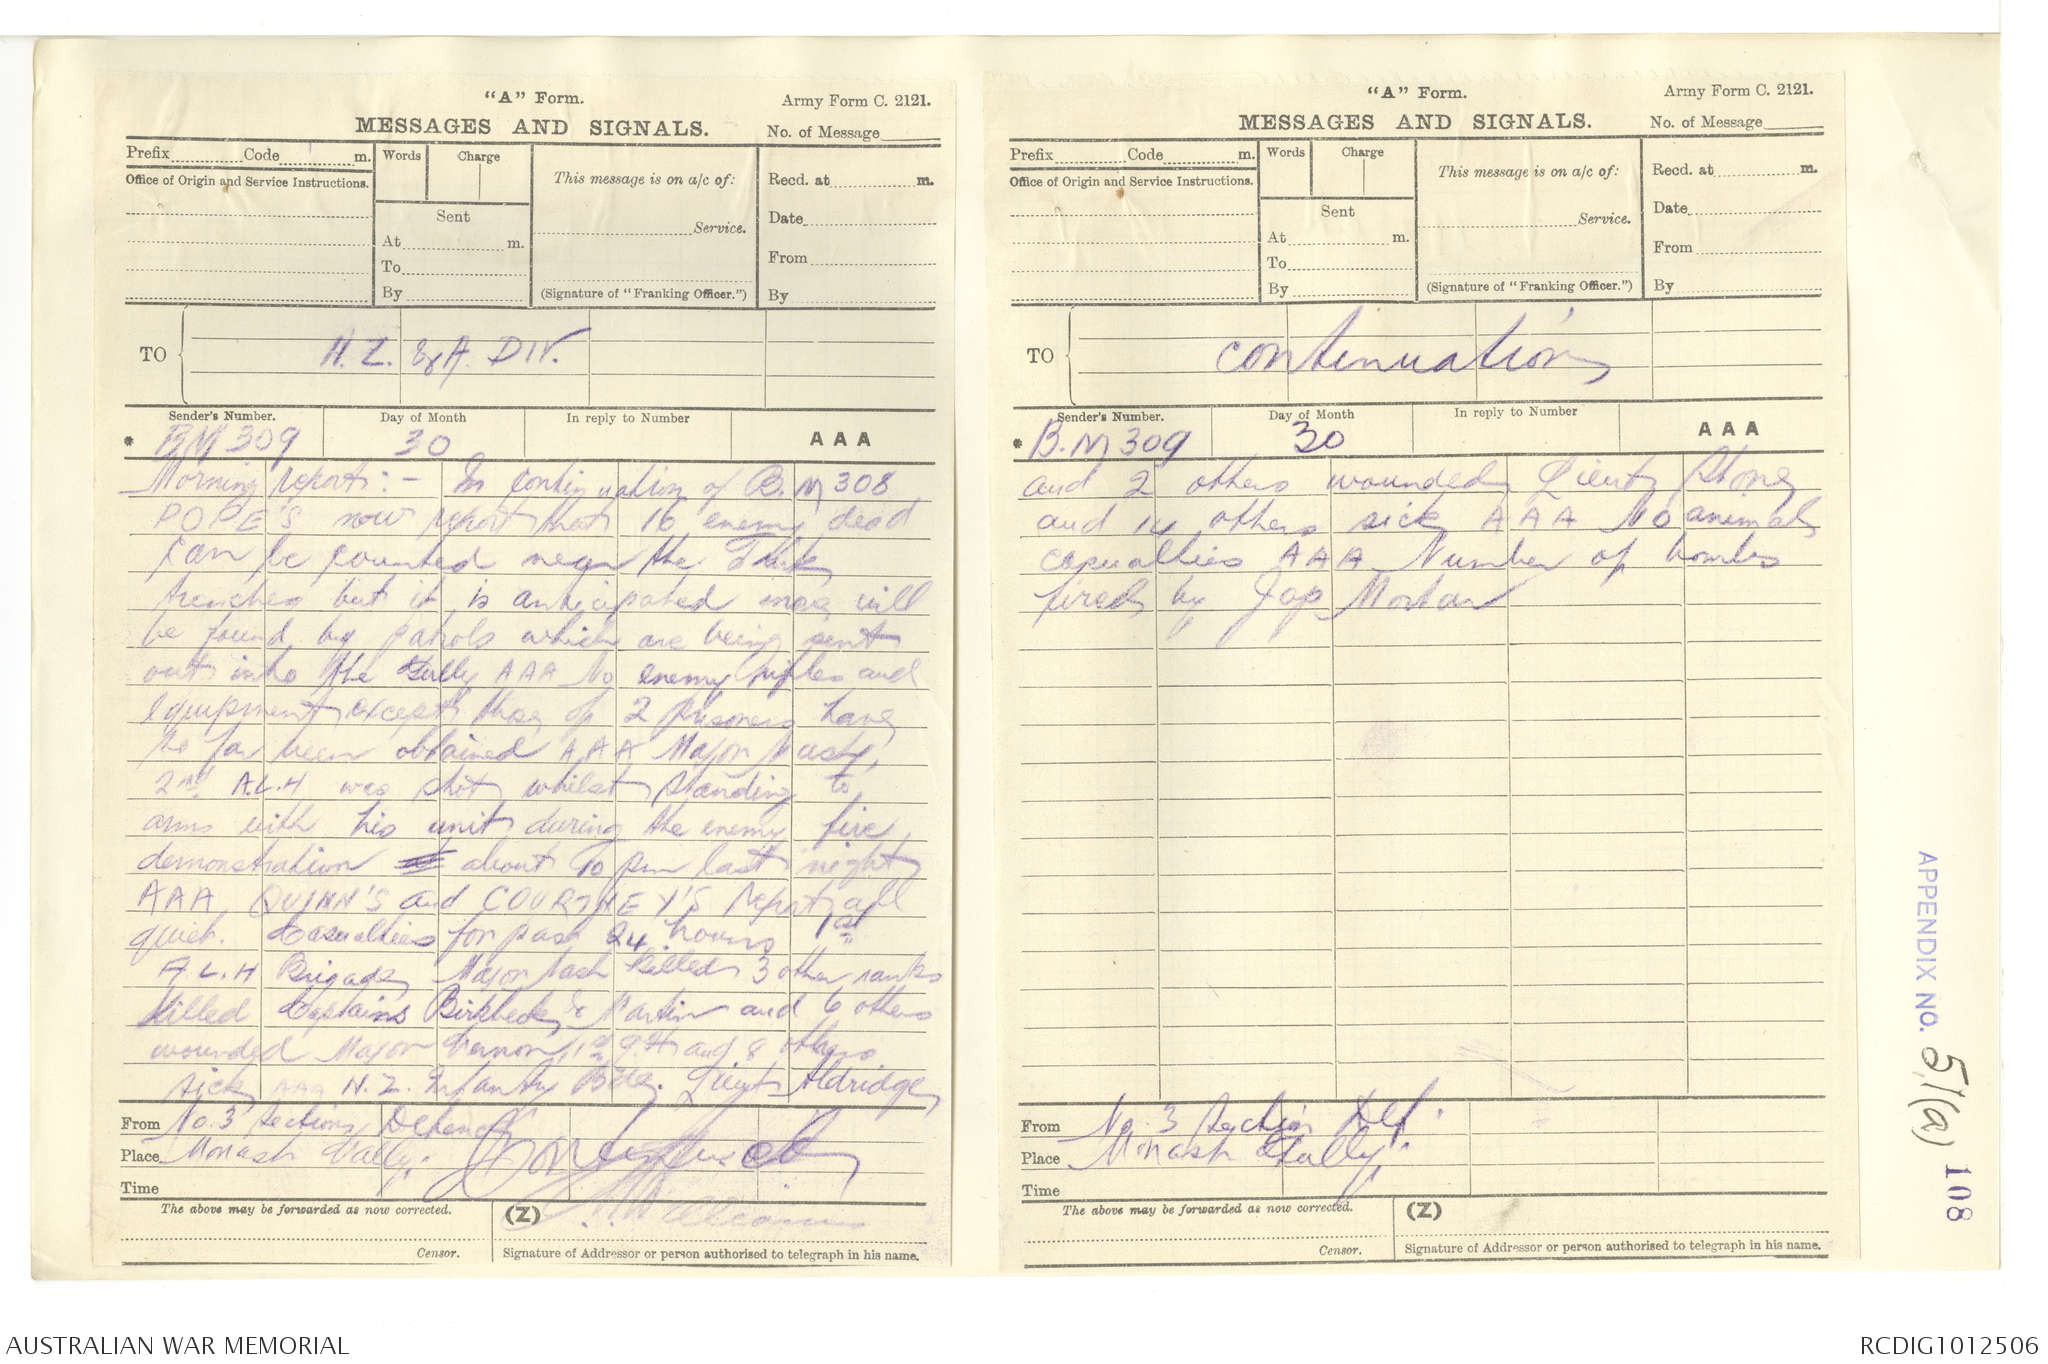 "A" Form.
Army Form C. 2121.
MESSAGES AND SIGNALS.
No. of Message
Prefix Code m.
Words Charge
This message is on a/c of:
Recd. at m.
Office of Origin and Service Instructions.
Sent
Service.
Date
At m.
To
From
By
(Signature of "Franking Officer.")
By
TO N.Z. & A. DIV.
Sender's Number. Day of Month In reply to Number
* BM 309 30 AAA
Morning report:- In continuation of B.M 308
POPE'S now report that 16 enemy dead
can be counted near the Turk
trenches but it is anticipated more will
be found by patrols which are being sent
out into the Gully AAA No enemy rifles and
equipment except those of 2 prisoners have
so far been obtained AAA Major Nash,
2nd A.L.H was shot whilst standing to
arms with his unit during the enemy fire
demonstration about 10 pm last night
AAA QUINN'S and COURTNEY'S report all
quiet. Casualties for past 24 hours 1st
A.L.H Brigade Major Nash killed 3 other ranks
killed Captains Birkbeck & Martin and 6 others
wounded Major Vernon, 1st L.H and 8 others
sick AAA N.Z. Infantry Bde. Lieut Aldridge
From No. 3 Section, Defence
Place Monash Valley.
Time
The above may be forwarded as now corrected. (Z)
Censor. Signature of Addressor or person authorised to telegraph in his name.
"A" Form.
Army Form C. 2121.
MESSAGES AND SIGNALS.
No. of Message
Prefix Code m.
Words Charge
This message is on a/c of:
Recd. at m.
Office of Origin and Service Instructions.
Sent
Service.
Date
At m.
To
From
By
(Signature of "Franking Officer.")
By
TO continuation
Sender's Number. Day of Month In reply to Number
* B.M 309 30 AAA
and 2 others wounded Lieut Stone
and 14 others sick AAA No animal
casualties AAA Number of bombs
fired by Jap Mortar
From No. 3 Section Def.
Place Monash Gully.
Time
The above may be forwarded as now corrected. (Z)
Censor. Signature of Addressor or person authorised to telegraph in his name.
APPENDIX NO. 51(a) 108
AUSTRALIAN WAR MEMORIAL
RCDIG1012506